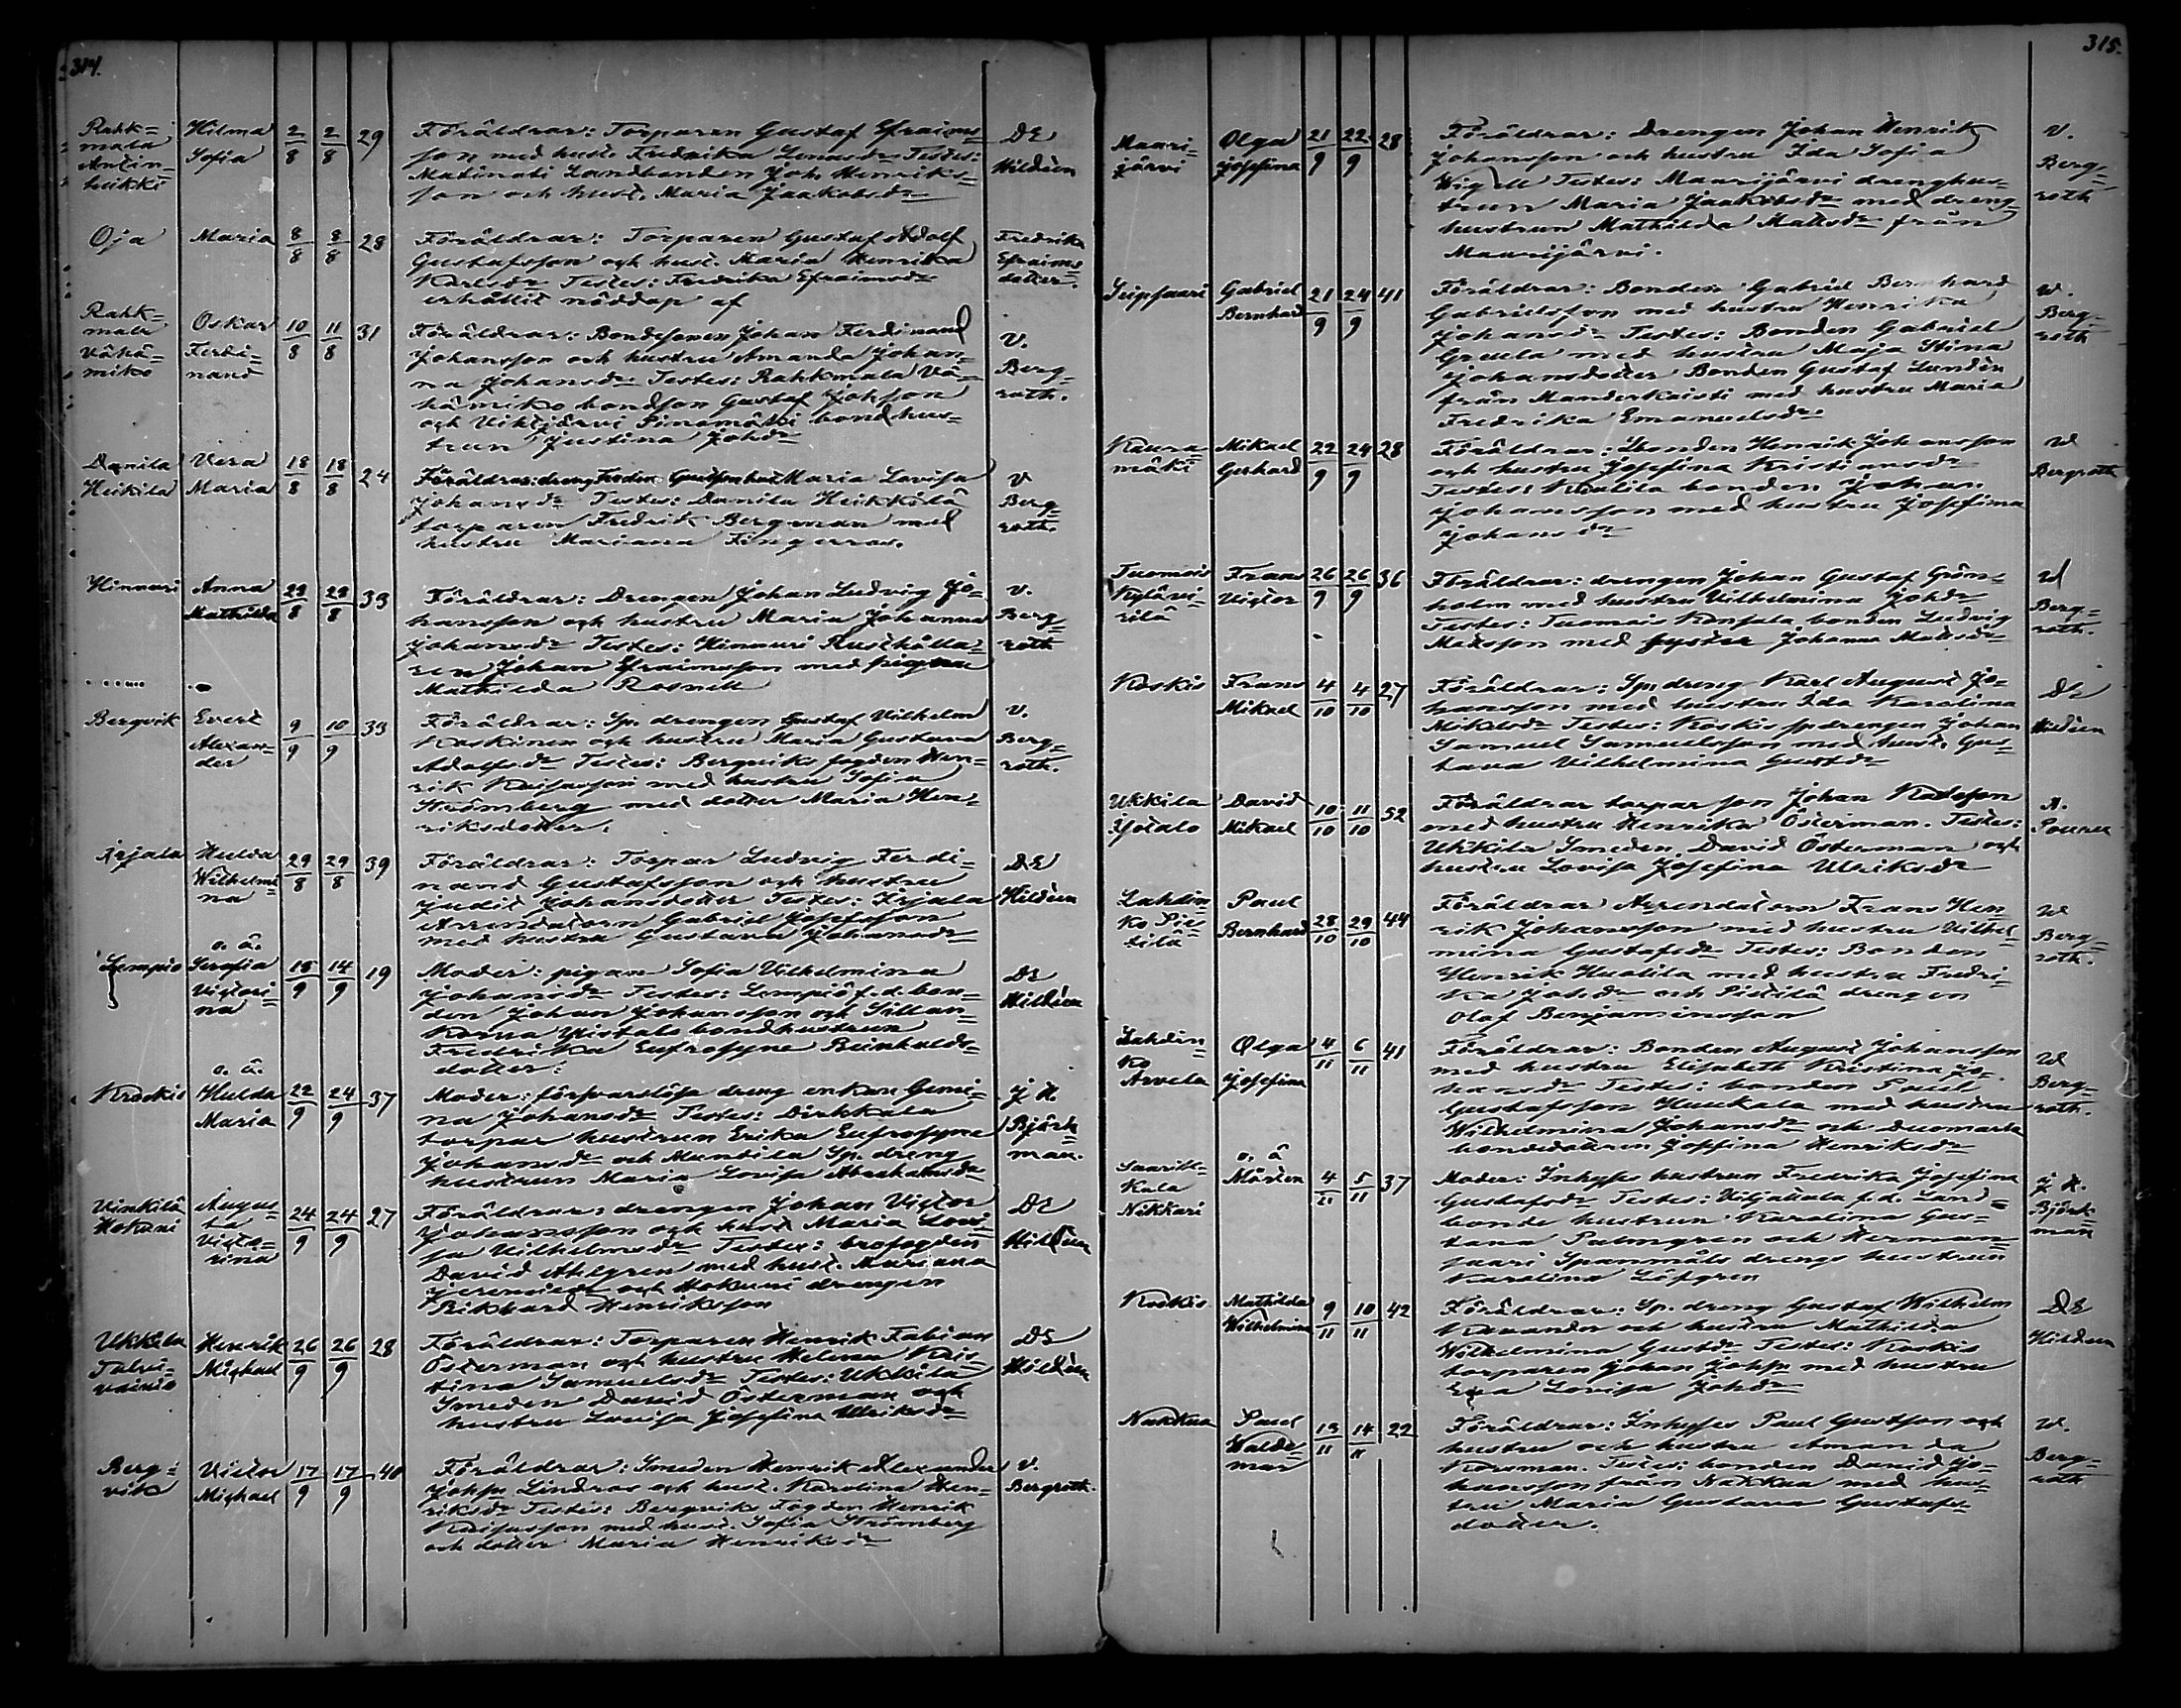 314.
Rahk=
mala
Antin=
heikki
Hilma
Sofia
2/8 2/8 29
Föräldrar: Torparen Gustaf Efraims=
son med hust. Fredrika Lenasdr Testes:
Matinoti Landbonden Joh. Henriks=
son och hust. Maria Jaakobsdr
DE
Hildèen
Oja
Maria
8/8 8/8 28
Föräldrar: Torparen Gustaf Adolf
Gustafsson och hust. Maria Henrika
Karlsdr Testes: Fredrika Efraimsdr
erhållit nöddop af
Fredrika
Efraims=
dotter.
Rahk=
mala
Vähä=
miko
Oskar
Ferdi=
nand
10/8 11/8 31
Föräldrar: Bondesonen Johan Ferdinand
Johansson och hustru Amanda Johan=
na Johansdr Testes: Rahkmala Vä=
hämiko bondson Gustaf Johsson
och Vihtjärvi Pinomätti bondhus=
trun Justina Johdr
V.
Berg=
roth.
Danila
Heikilä
Vera
Maria
18/8 18/8 24
Föräldrar: dreng Maria Lovisa
Johansdr Testes: Danila Heikkilä
torparen Fredrik Bergman med
hustru Mariana Fingerroos.
V
Berg=
roth.
Hinnuri
Anna
Mathilda
28/8 28/8 33
Föräldrar: Drengen Johan Ludvig Jo=
hansson och hustru Maria Johanna
Johansdr Testes: Hinnuri Rusthålla=
ren Johan Efraimsson med pigan
Mathilda Rosnell
V.
Berg=
roth
Bergvik
Evert
Alexan=
der
9/9 10/9 33
Föräldrar: Sp. drengen Gustaf Vilhelm
Koskinen och hustru Maria Gustava
Adolfsdr Testes: Bergviks fogden Hen=
rik Kaijasson med hustru Sofia
Strömberg med dotter Maria Hen=
riksdotter.
V.
Berg=
roth.
Irjala
Hulda
Wilhelmi=
na
29/8 29/8 39
Föräldrar: Torpar Ludvig Ferdi=
nand Gustafsson och hustru
Judit Johansdotter Testes: Irjala
Arrendatorn Gabriel Josefsson
med hustru Gustava Johansdr
DE
Hildèen
Lempio
o. ä.
Serafia
Victori=
na
13/9 14/9 19
Moder: pigan Sofia Vilhelmina
Johansdr Testes: Lempiö f.d. bon=
den Johan Johansson och Sillan=
korva Yistalo bondhustrun
Fredrika Eufrosyne Reinholds=
dotter.
DE
Hildèen
Kroskis
o. ä.
Hulda
Maria
22/9 24/9 37
Moder: försvarslösa dreng enkan Gemi=
na Johansdr Testes: Dirkkala
torpar hustrun Erika Eufrosyne
Johansdr och Muntila Sp. dreng
hustrun Maria Lovisa Abrahamsdr
J H.
Björk=
man.
Vinkilä
Hokuni
Augus=
ta
Victo=
rina
24/9 24/9 27
Föräldrar: drengen Johan Victor
Johansson och hust Maria Lovi=
sa Vilhelmsdr Testes: brofogden
David Ahlgren med hust. Mariana
Jeremidr och Hokuni drengen
Rikhard Henriksson
DE
Hildèen
Ukkila
Talvi=
vainio
Henrik
Michael
26/9 26/9 28
Föräldrar: Torparen Henrik Fabian
Österman och hustru Helena Kris=
tina Samuelsdr Testes: Ukkila
Smeden David Österman och
hustru Lovisa Josefina Ulriksdr
DE
Hildèen
Berg=
vik
Victor
Michael
17/9 17/9 40
Föräldrar: Smeden Henrik Alexander
Johsn Lindros och hust. Karolina Hen=
riksdr Testes: Bergviks Fogden Henrik
Kaijasson med hust. Sofia Strömberg
och dotter Maria Henriksdr
V.
Bergroth.
315.
Mauri=
järvi
Olga
Josefina
21/9 22/9 28
Föräldrar: Drengen Johan Henrik
Johansson och hustru Ida Sofia
Wigell Testes: Maurijärvi drenghus=
trun Maria Jaakobsdr med dreng
hustrun Mathilda Matsdr från
Maurijärvi.
V.
Berg=
roth
Seipsaari
Gabriel
Bernhard
21/9 24/9 41
Föräldrar: Bonden Gabriel Bernhard
Gabrielsson med hustru Henrika
Johansdr Testes: Bonden Gabriel
Greula med hustru Maja Stina
Johansdotter Bonden Gustaf Lundèn
från Manderkaisti med hustru Maria
Fredrika Emanuelsdr
W.
Berg=
roth
Kaura=
mäki
Mikael
Gerhard
22/9 24/9 28
Föräldrar: Bonden Henrik Johansson
och hustru Josefina Kristiansdr
Testes: Knalila bonden Johan
Johansson med hustru Josefina
Johansdr
W
Bergroth
Tuomois
Kylävi=
rilä
Frans
Victor
26/9 26/9 36
Föräldrar: drengen Johan Gustaf Grön=
holm med hustru Vilhelmina Johdr
Testes: Tuomois Konsala bonden Ludvig
Matsson med syster Johanna Matsdr
W
Berg=
roth.
Koskis
Frans
Mikael
4/10 4/10 27
Föräldrar: Sp. dreng Karl August Jo=
hansson med hustru Ida Karolina
Mikelsdr Testes: Koskis sp drengen Johan
Samuel Samuelsson med hust. Gus=
tava Vilhelmina Gustdr
DE
Hildèen
Ukkila
Yötalo
David
Mikael
10/10 11/10 52
Föräldrar torpar son Johan Karlsson
med hustru Henrika Österman. Testes:
Ukkila Smeden David Österman och
hustru Lovisa Josefina Ulriksdr
A.
Pourru
Lahdin=
ko Pis=
tilä
Paul
Bernhard
28/10 29/10 44
Föräldrar Arrendatorn Frans Hen=
rik Johansson med hustru Vilhel=
mina Gustafsdr Testes: Bonden
Henrik Huolila med hustru Fredri=
ka Johsdr och Pistilä drengen
Olof Benjaminsson
W
Berg=
roth.
Lahdin=
ko
Arvela
Olga
Josefina
4/11 6/11 41
Föräldrar: Bonden August Johansson
med hustru Elisabeth Kristina Jo=
hansdr Testes: bonden Paul
Gustafsson Huukala med hustru
Wilhelmina Johansdr och Duomarla
bondedottern Josfina Henriksdr
W
Berg=
roth.
Saaritt=
kala
Nikkari
o. ä
Mårten
4/11 5/11 37
Moder: Inhyses hustrun Fredrika Josefina
Gustafsdr Testes: Viljakala f.d. Land=
bonde hustrun Karolina Gus=
tava Palmgren och Herman=
saari Spannmåls drengs hustrun
Karolina Löfgren
J H.
Björk=
man
Koskis
Mathilda
Wilhelmina
9/11 10/11 42
Föräldrar: Sp. dreng Gustaf Wilhelm
Kavander och hustru Mathilda
Wilhelmina Gustdr Testes: Koskis
torparen Johan Johsn med hustru
Eva Lovisa Johdr
DE
Hildèen
Nakkua
Paul
Walde=
mar
13/11 14/11 22
Föräldrar: Inhyses Paul Gustsson och
hustru och hustru Amanda
Korsman. Testes: bonden David Jo=
hansson från Nakkua med hus=
tru Maria Gustava Gustafs=
dotter.
W.
Berg=
roth